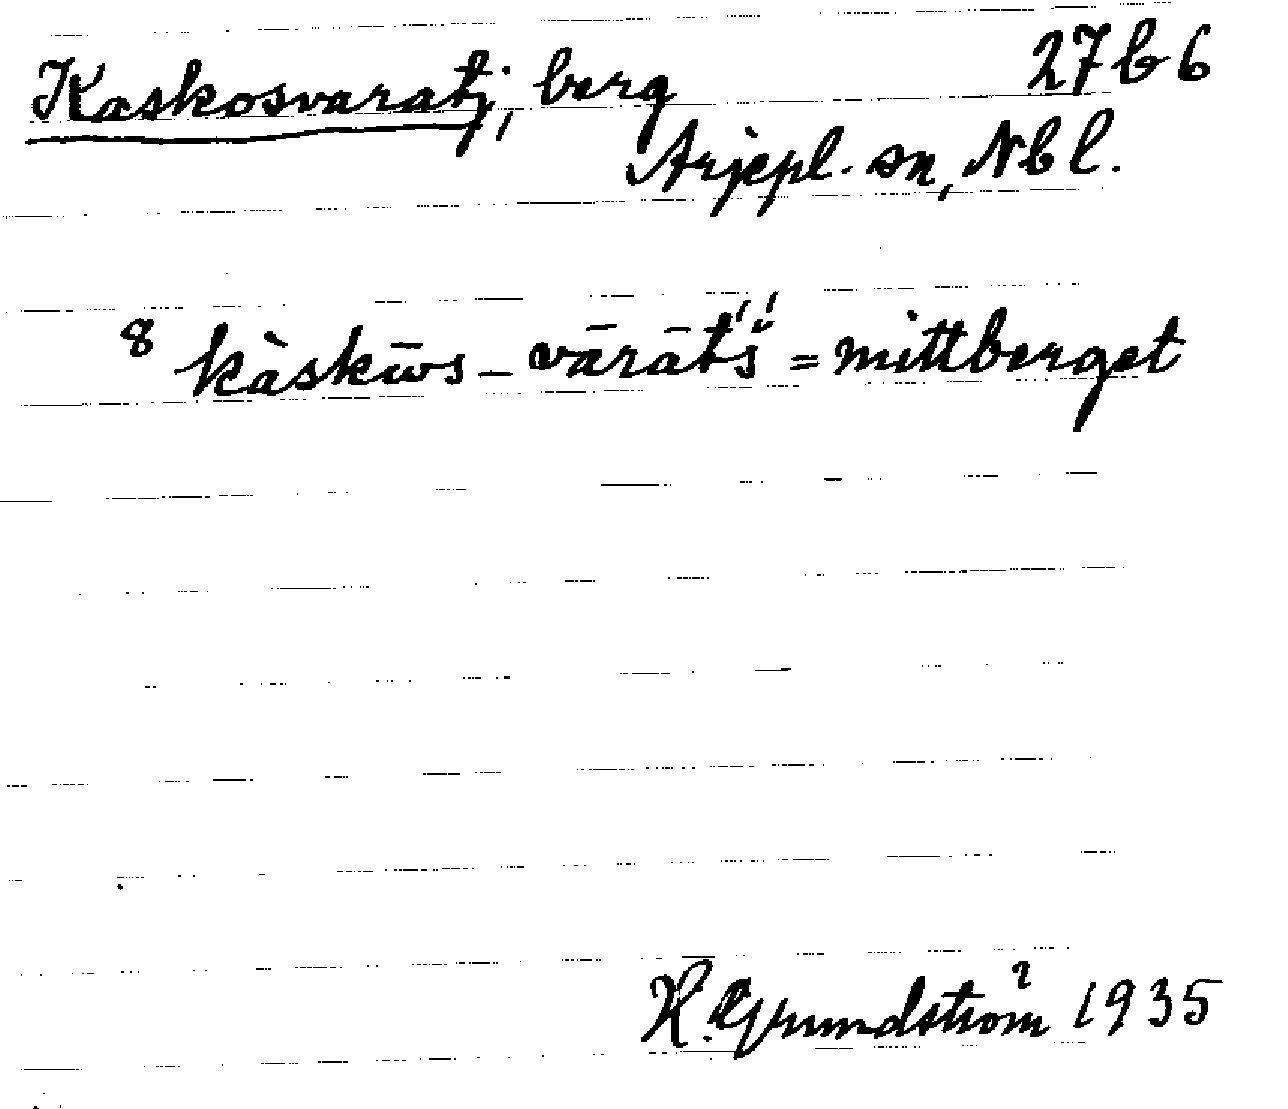 Kaskosvaratj, berg 27b6
Arjepl. sn, Nbl.
8 kàskūs-vārātš́ = mittberget
H. Grundström 1935